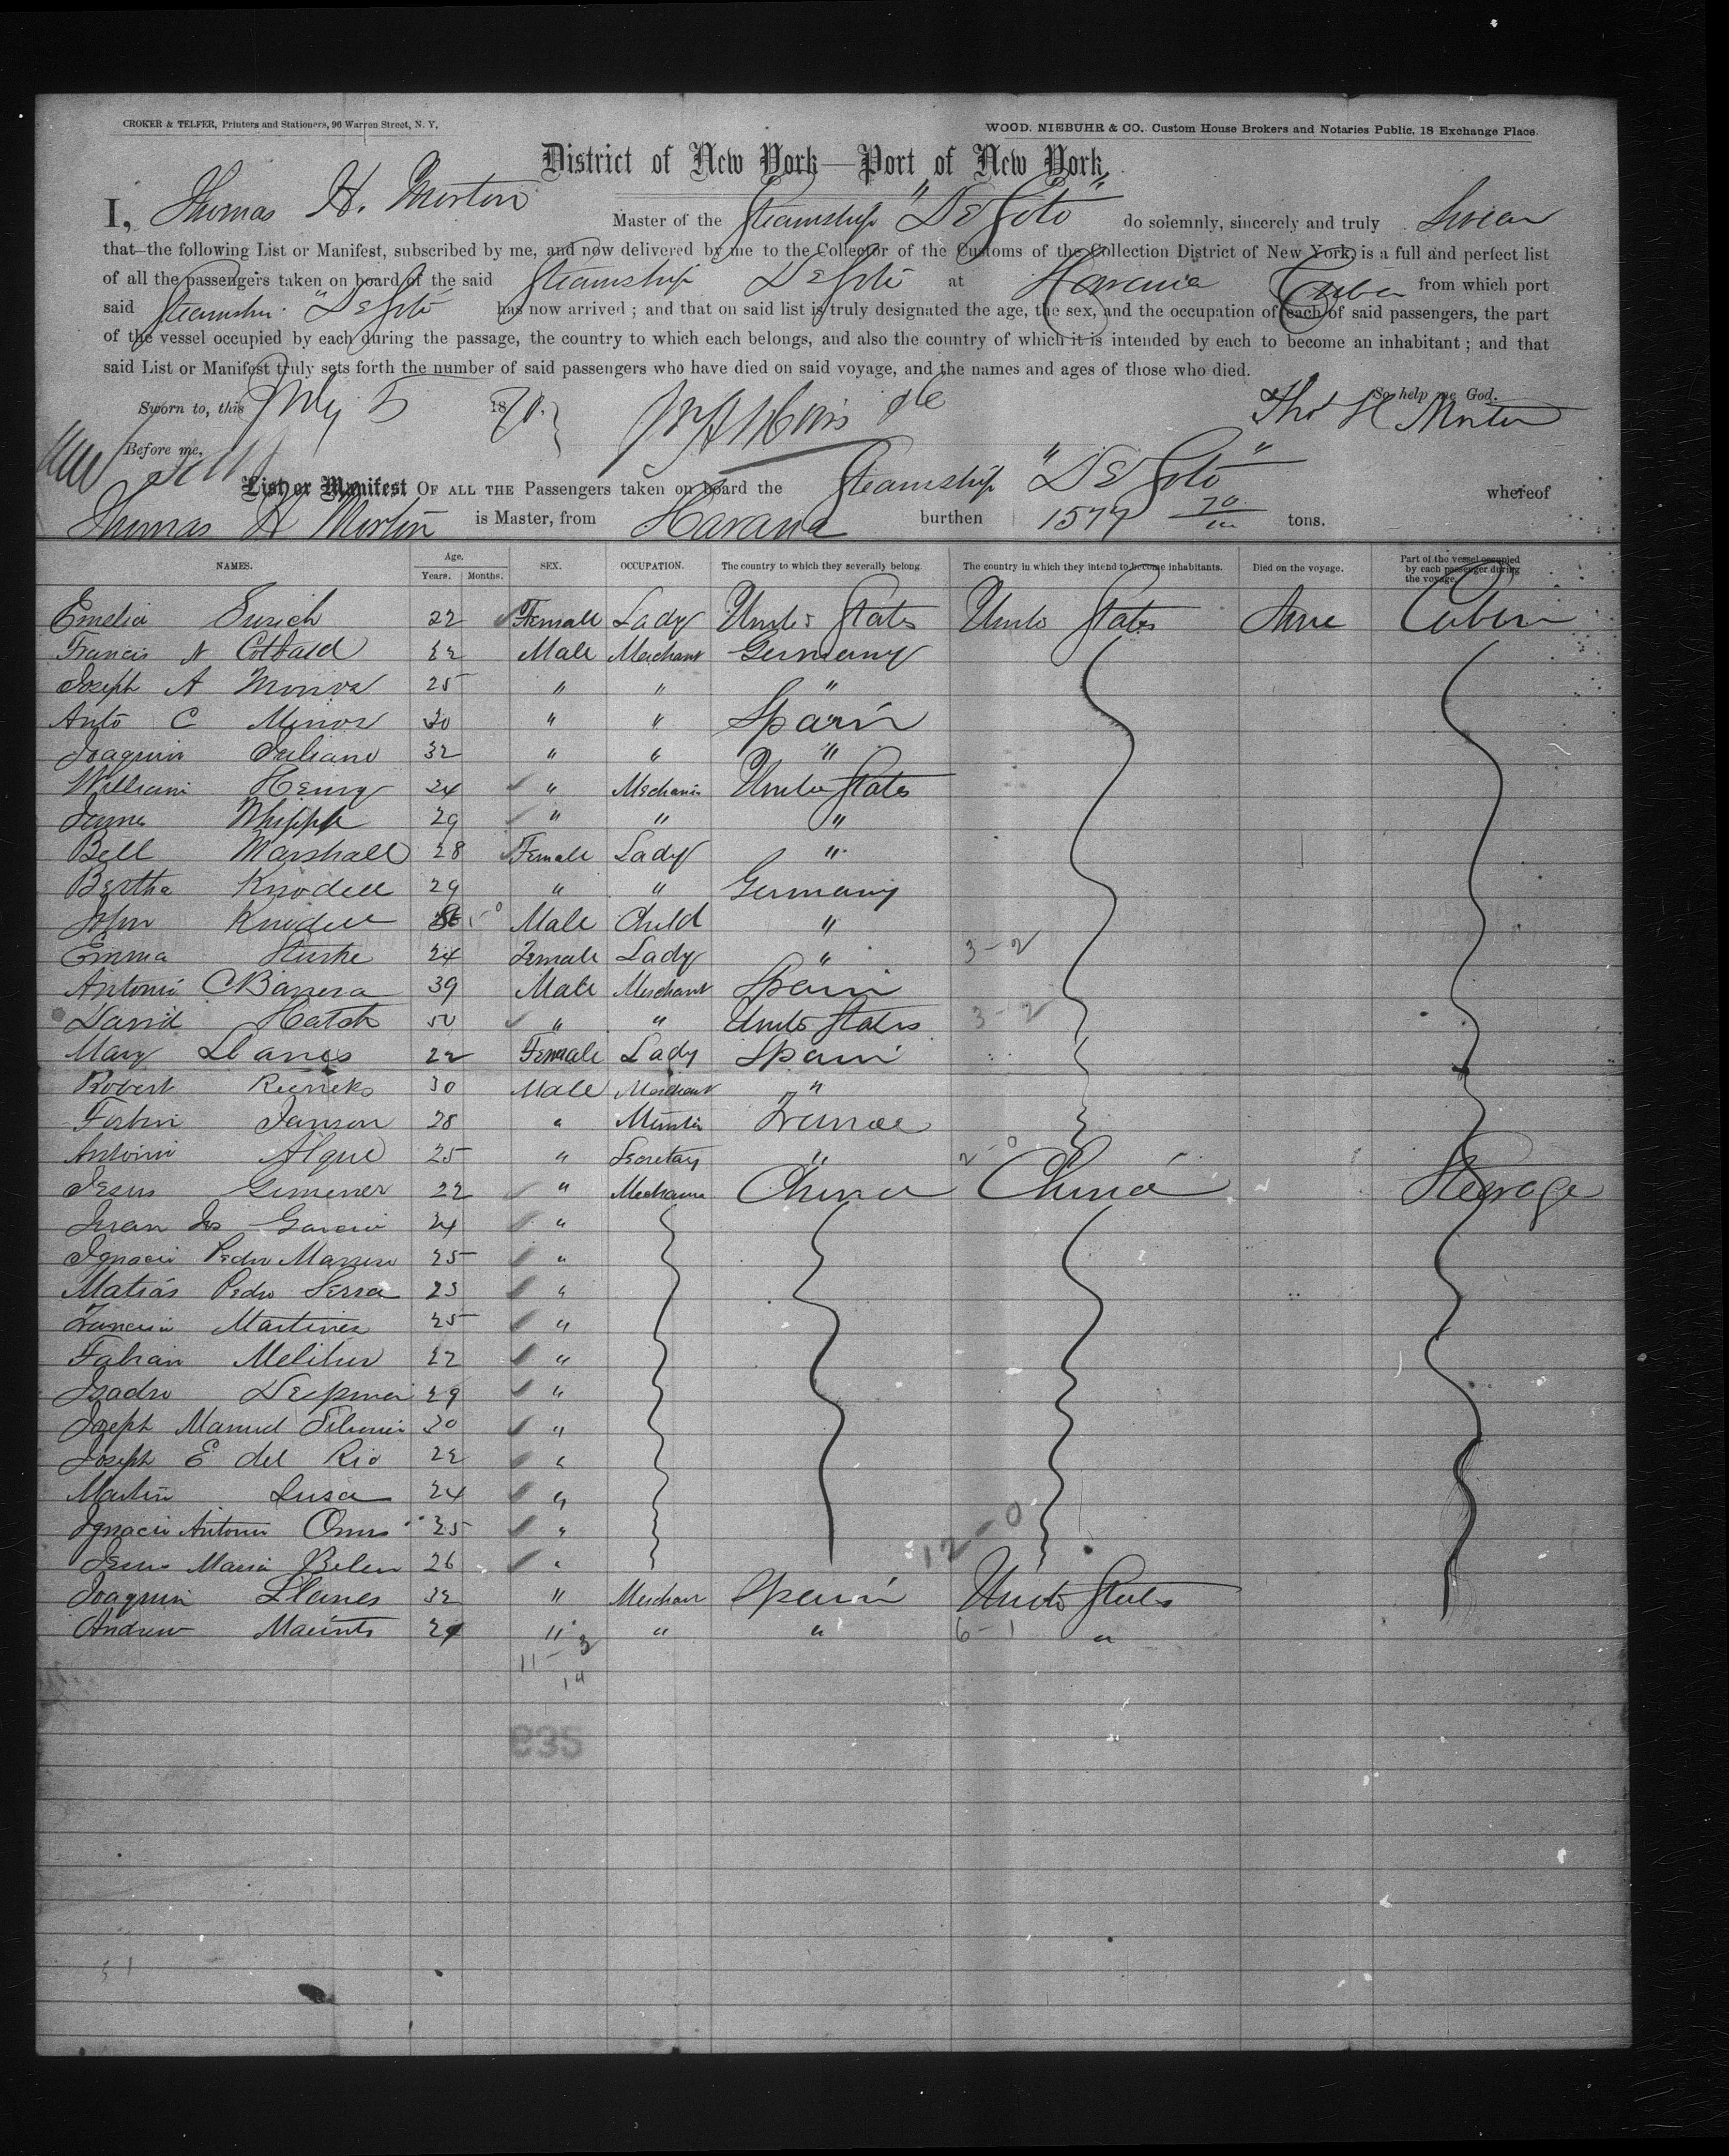 CROKER & TELFER, Printers and Stationers, 96 Warren Street, N. Y.
WOOD, NIEBUHR & CO. Custom House Brokers and Notaries Public, 18 Exchange Place.
District of New York—Port of New York.
I, Thomas H. Morton Master of the Steamship "De Soto" do solemnly, sincerely and truly Swear
that the following List or Manifest, subscribed by me, and now delivered by me to the Collector of the Customs of the Collection District of New York, is a full and perfect list
of all the passengers taken on board of the said Steamship De Soto at Havana Cuba from which port
said Steamship "De Soto has now arrived ; and that on said list is truly designated the age, the sex, and the occupation of each of said passengers, the part
of the vessel occupied by each during the passage, the country to which each belongs, and also the country of which it is intended by each to become an inhabitant ; and that
said List or Manifest truly sets forth the number of said passengers who have died on said voyage, and the names and ages of those who died.
So help me God.
Sworn to, this July 5 1870. Tho H Morton
Before me,
List or Manifest OF ALL THE Passengers taken on board the Steamship "De Soto" whereof
Thomas H Morton is Master, from Havana burthen 1577 70/100 tons.
NAMES. Age. Years. Months. SEX. OCCUPATION. The country to which they severally belong. The country in which they intend to become inhabitants. Died on the voyage. Part of the vessel occupied by each passenger during the voyage.
Emelia 22 Female Lady United States United States Cabin
Francis A 22 Male Merchant Germany
Joseph A 25 " " "
Anto C Minor 30 " " Spain
Joaquin Juliano 32 " " "
William Henry 24 " Mechanic United States
James Whipple 29 " " "
Bell Marshall 28 Female Lady "
Bertha Knodell 29 " " Germany
John Knodell Male Child "
Emma 24 Female Lady " 3-2
Antonio C Barrera 39 Male Merchant Spain
David Hatch 50 " " United States 3-2
Mary Llanes 22 Female Lady Spain
Robert 30 Male Merchant "
Janson 28 " Minister France
Antoini 25 " Secretary " 2-0
Jesus Gimener 22 " Mechanic China China Steerage
Juan Jos Garcia 24 "
Ignacio Pedro 25 "
Matias Pedro Serra 23 "
Martinez 25 "
Fabian 22 "
Isadro 29 "
Joseph Manuel 30 "
Joseph E del Rio 22 "
Martin Lusa 24 "
Ignacio Antonio 25 " 12-0
Jesus Maria Belen 26 "
Joaquin Llanes 32 " Merchant Spain United States
Andrew " " " 6-1 "
11-3
14
835